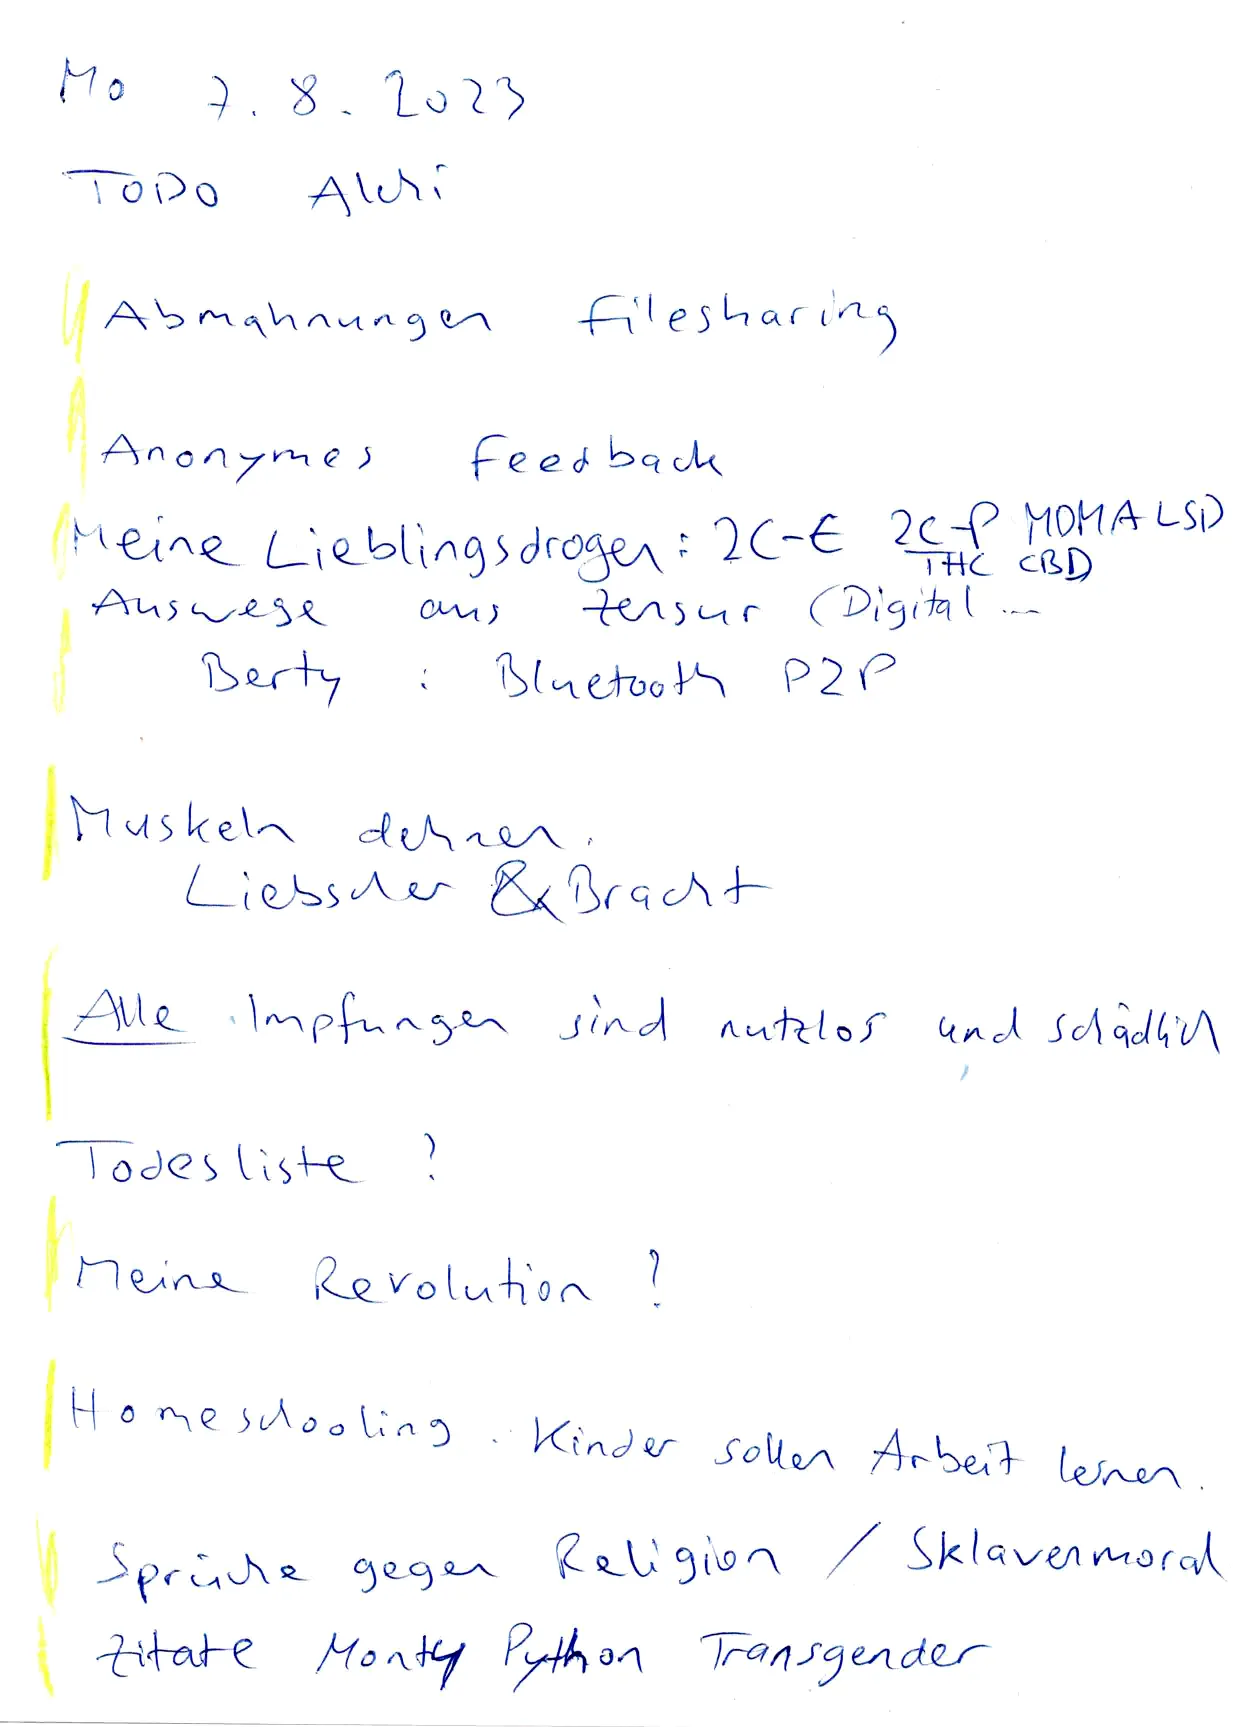 Mo 7.8.2023
TODO Alchi
Abmahnungen filesharing
Anonymes Feedback
Meine Lieblingsdrogen: 2C-E 2C-P MDMA LSD
THC CBD
Auswege aus Zensur (Digital ...
Berty : Bluetooth P2P
Muskeln dehnen.
Liebscher & Bracht
Alle Impfungen sind nutzlos und schädlich
Todesliste ?
Meine Revolution ?
Homeschooling. Kinder sollen Arbeit lernen.
Sprüche gegen Religion / Sklavenmoral
Zitate Monty Python Transgender